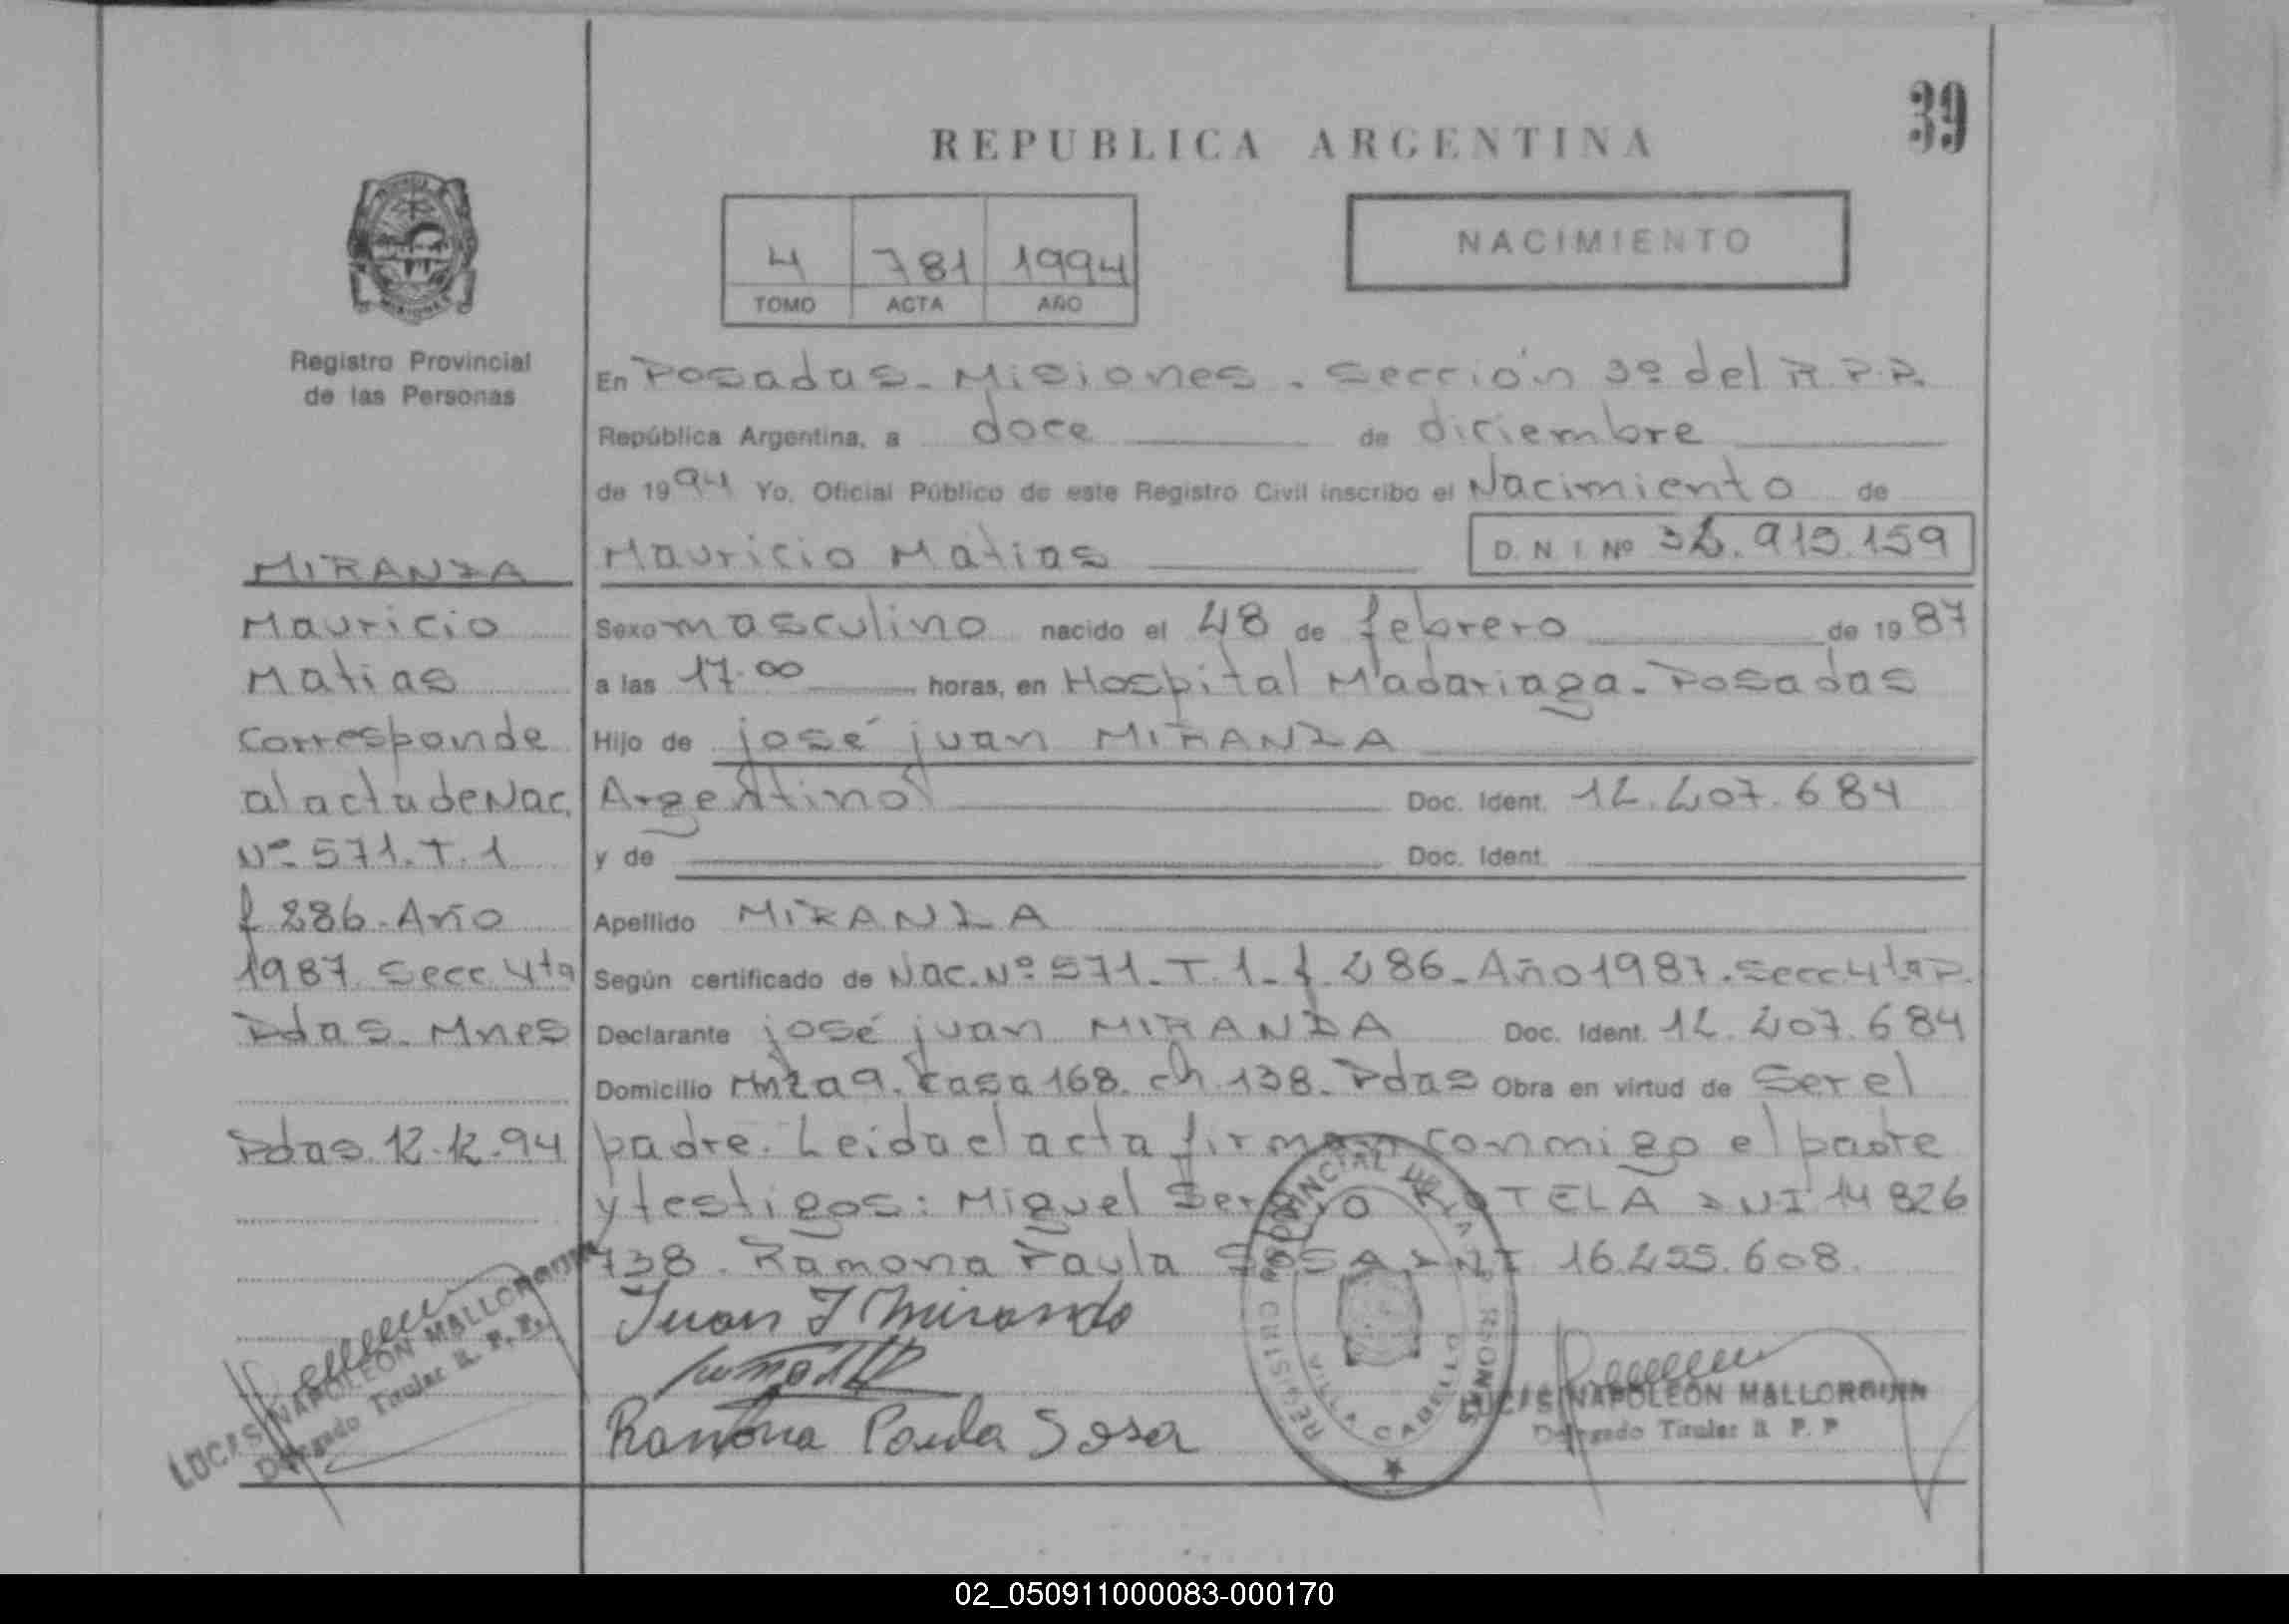 39
REPUBLICA ARGENTINA
4 781 1994
TOMO ACTA AÑO
NACIMIENTO
MISIONES
Registro Provincial
de las Personas
MIRANDA
Mauricio
Matias
Corresponde
al acta de Nac.
Nº 571. T. 1
f 286. Año
1987. Secc. 4ta
Pdas. Mnes
Pdas. 12.12.94
LUCAS NAPOLEON MALLORQUIN
Delegado Titular R. P. P.
En Posadas. Misiones. Sección 3º del R.P.P.
República Argentina, a doce de diciembre
de 1994 Yo, Oficial Público de este Registro Civil inscribo el Nacimiento de
Mauricio Matias D. N. I. Nº 913.159
Sexo masculino nacido el 18 de febrero de 1987
a las 17.00 horas, en Hospital Madariaga. Posadas
Hijo de josé juan MIRANDA
Argentino Doc. Ident. 12.207.684
y de Doc. Ident.
Apellido MIRANDA
Según certificado de Nac. Nº 571. T. 1. f. 286. Año 1987. Secc 4ta P.
Declarante josé juan MIRANDA Doc. Ident. 12.207.684
Domicilio Mnza 9. casa 168. ch. 138. Pdas Obra en virtud de Ser el
padre. Leida el acta firman conmigo el padre
y testigos: Miguel Sergio ROTELA DNI 14 826
738. Ramona Paula SOSA DNI 16.255.608.
Juan J Miranda
Ramona Paula Sosa
REGISTRO PROVINCIAL DE LAS PERSONAS
VILLA CABELLO
LUCAS NAPOLEON MALLORQUIN
Delegado Titular R. P. P
02_050911000083-000170